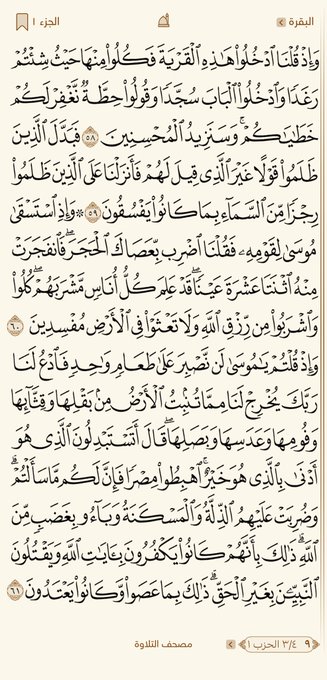 البقرة
الجزء ١
وَإِذْ قُلْنَا ٱدْخُلُوا۟ هَـٰذِهِ ٱلْقَرْيَةَ فَكُلُوا۟ مِنْهَا حَيْثُ شِئْتُمْ
رَغَدًا وَٱدْخُلُوا۟ ٱلْبَابَ سُجَّدًا وَقُولُوا۟ حِطَّةٌ نَّغْفِرْ لَكُمْ
خَطَـٰيَـٰكُمْ ۚ وَسَنَزِيدُ ٱلْمُحْسِنِينَ ٥٨ فَبَدَّلَ ٱلَّذِينَ
ظَلَمُوا۟ قَوْلًا غَيْرَ ٱلَّذِى قِيلَ لَهُمْ فَأَنزَلْنَا عَلَى ٱلَّذِينَ ظَلَمُوا۟
رِجْزًا مِّنَ ٱلسَّمَآءِ بِمَا كَانُوا۟ يَفْسُقُونَ ٥٩ ۞ وَإِذِ ٱسْتَسْقَىٰ
مُوسَىٰ لِقَوْمِهِۦ فَقُلْنَا ٱضْرِب بِّعَصَاكَ ٱلْحَجَرَ ۖ فَٱنفَجَرَتْ
مِنْهُ ٱثْنَتَا عَشْرَةَ عَيْنًا ۖ قَدْ عَلِمَ كُلُّ أُنَاسٍ مَّشْرَبَهُمْ ۖ كُلُوا۟
وَٱشْرَبُوا۟ مِن رِّزْقِ ٱللَّهِ وَلَا تَعْثَوْا۟ فِى ٱلْأَرْضِ مُفْسِدِينَ ٦٠
وَإِذْ قُلْتُمْ يَـٰمُوسَىٰ لَن نَّصْبِرَ عَلَىٰ طَعَامٍ وَٰحِدٍ فَٱدْعُ لَنَا
رَبَّكَ يُخْرِجْ لَنَا مِمَّا تُنۢبِتُ ٱلْأَرْضُ مِنۢ بَقْلِهَا وَقِثَّآئِهَا
وَفُومِهَا وَعَدَسِهَا وَبَصَلِهَا ۖ قَالَ أَتَسْتَبْدِلُونَ ٱلَّذِى هُوَ
أَدْنَىٰ بِٱلَّذِى هُوَ خَيْرٌ ۚ ٱهْبِطُوا۟ مِصْرًا فَإِنَّ لَكُم مَّا سَأَلْتُمْ ۗ
وَضُرِبَتْ عَلَيْهِمُ ٱلذِّلَّةُ وَٱلْمَسْكَنَةُ وَبَآءُو بِغَضَبٍ مِّنَ
ٱللَّهِ ۗ ذَٰلِكَ بِأَنَّهُمْ كَانُوا۟ يَكْفُرُونَ بِـَٔايَـٰتِ ٱللَّهِ وَيَقْتُلُونَ
ٱلنَّبِيِّـۧنَ بِغَيْرِ ٱلْحَقِّ ۗ ذَٰلِكَ بِمَا عَصَوا۟ وَّكَانُوا۟ يَعْتَدُونَ ٦١
٩
٣/٤ الحزب ١
مصحف التلاوة